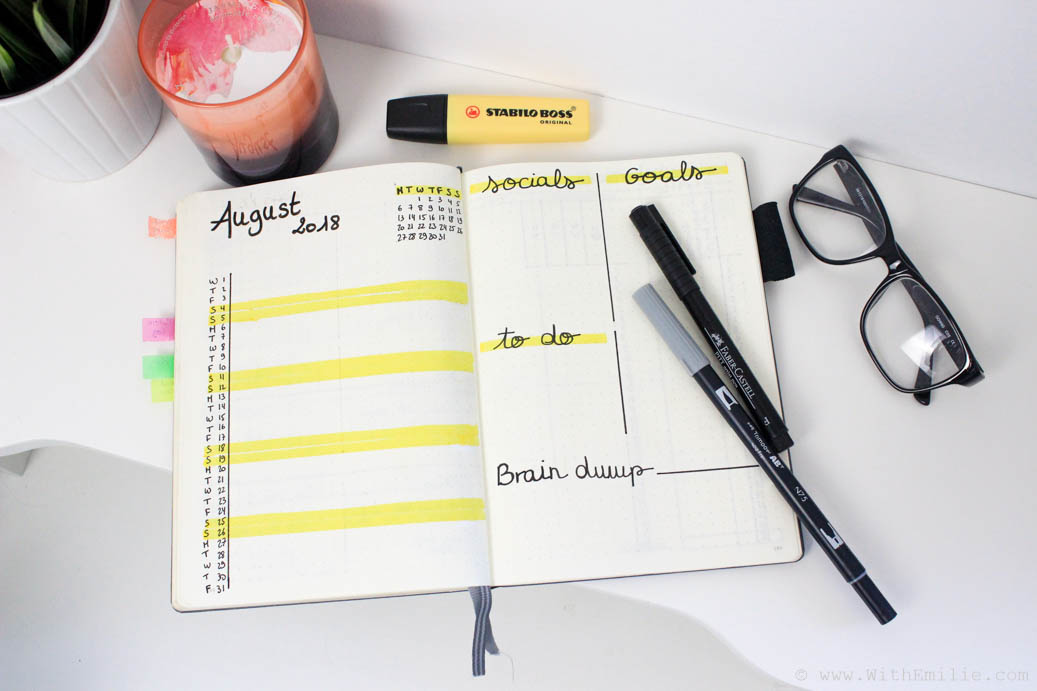 STABILO BOSS®
ORIGINAL
August
2018
M T W T F S S
1 2 3 4 5
6 7 8 9 10 11 12
13 14 15 16 17 18 19
20 21 22 23 24 25 26
27 28 29 30 31
W 1
T 2
F 3
S 4
S 5
M 6
T 7
W 8
T 9
F 10
S 11
S 12
M 13
T 14
W 15
T 16
F 17
S 18
S 19
M 20
T 21
W 22
T 23
F 24
S 25
S 26
M 27
T 28
W 29
T 30
F 31
socials
Goals
to do
Brain dump
FABER-CASTELL
Tombow ABT
N75
© www.WithEmilie.com